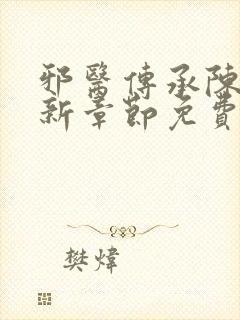 邪醫傳承陳
新章節免費
樊煒